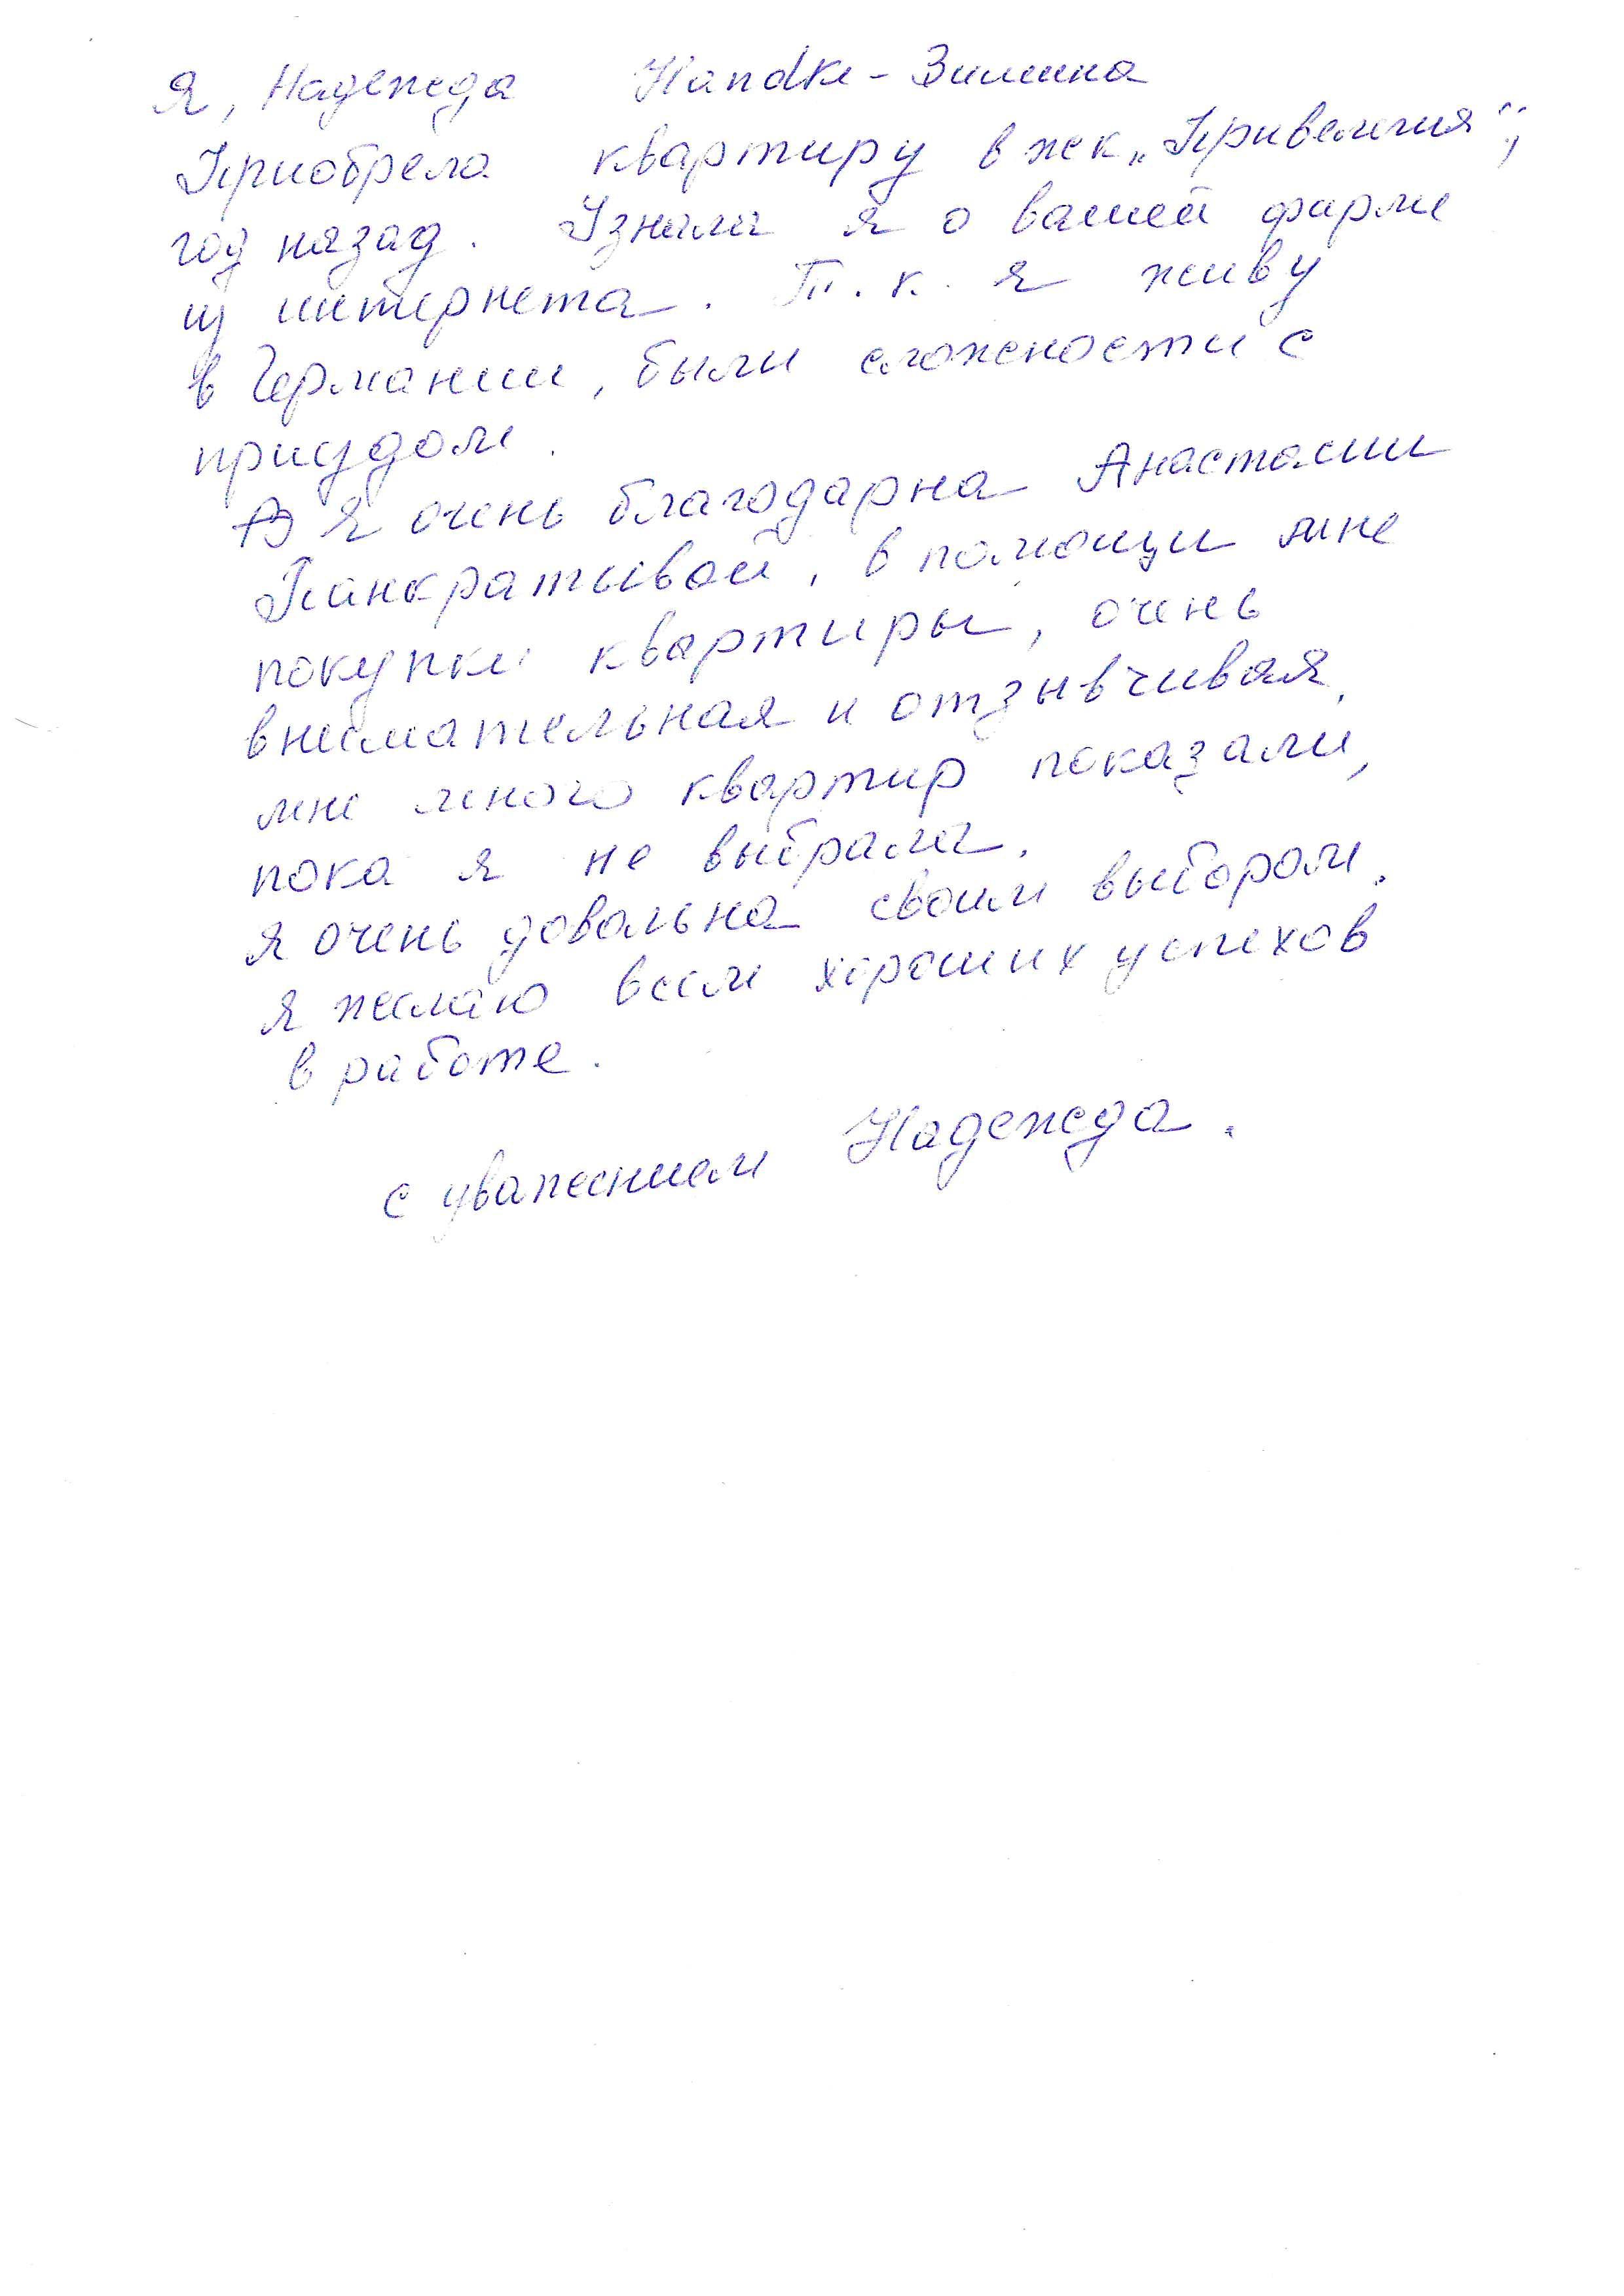 Я, Надежда Handke - Зимина
Приобрела квартиру в жск „Привелегия“,
год назад. Узнала я о вашей фирме
из интернета. Т.к. я живу
в Германии, были сложности с
приездом.
Я очень благодарна Анастасии
Панкратывой, в помощи мне
покупки квартиры, очень
внимательная и отзывчивая.
мне много квартир показали,
пока я не выбрала.
Я очень довольна своим выбором.
Я желаю всем хороших успехов
в работе.
с уважением Надежда.